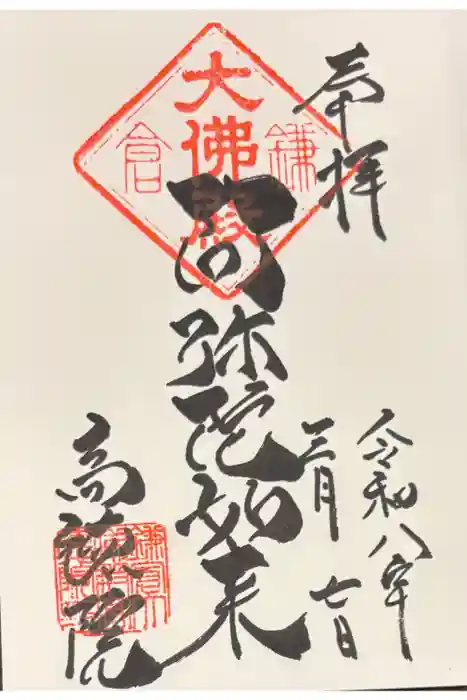 奉拝
令和八年
三月七日
鎌倉
大佛殿
阿弥陀如来
高徳院